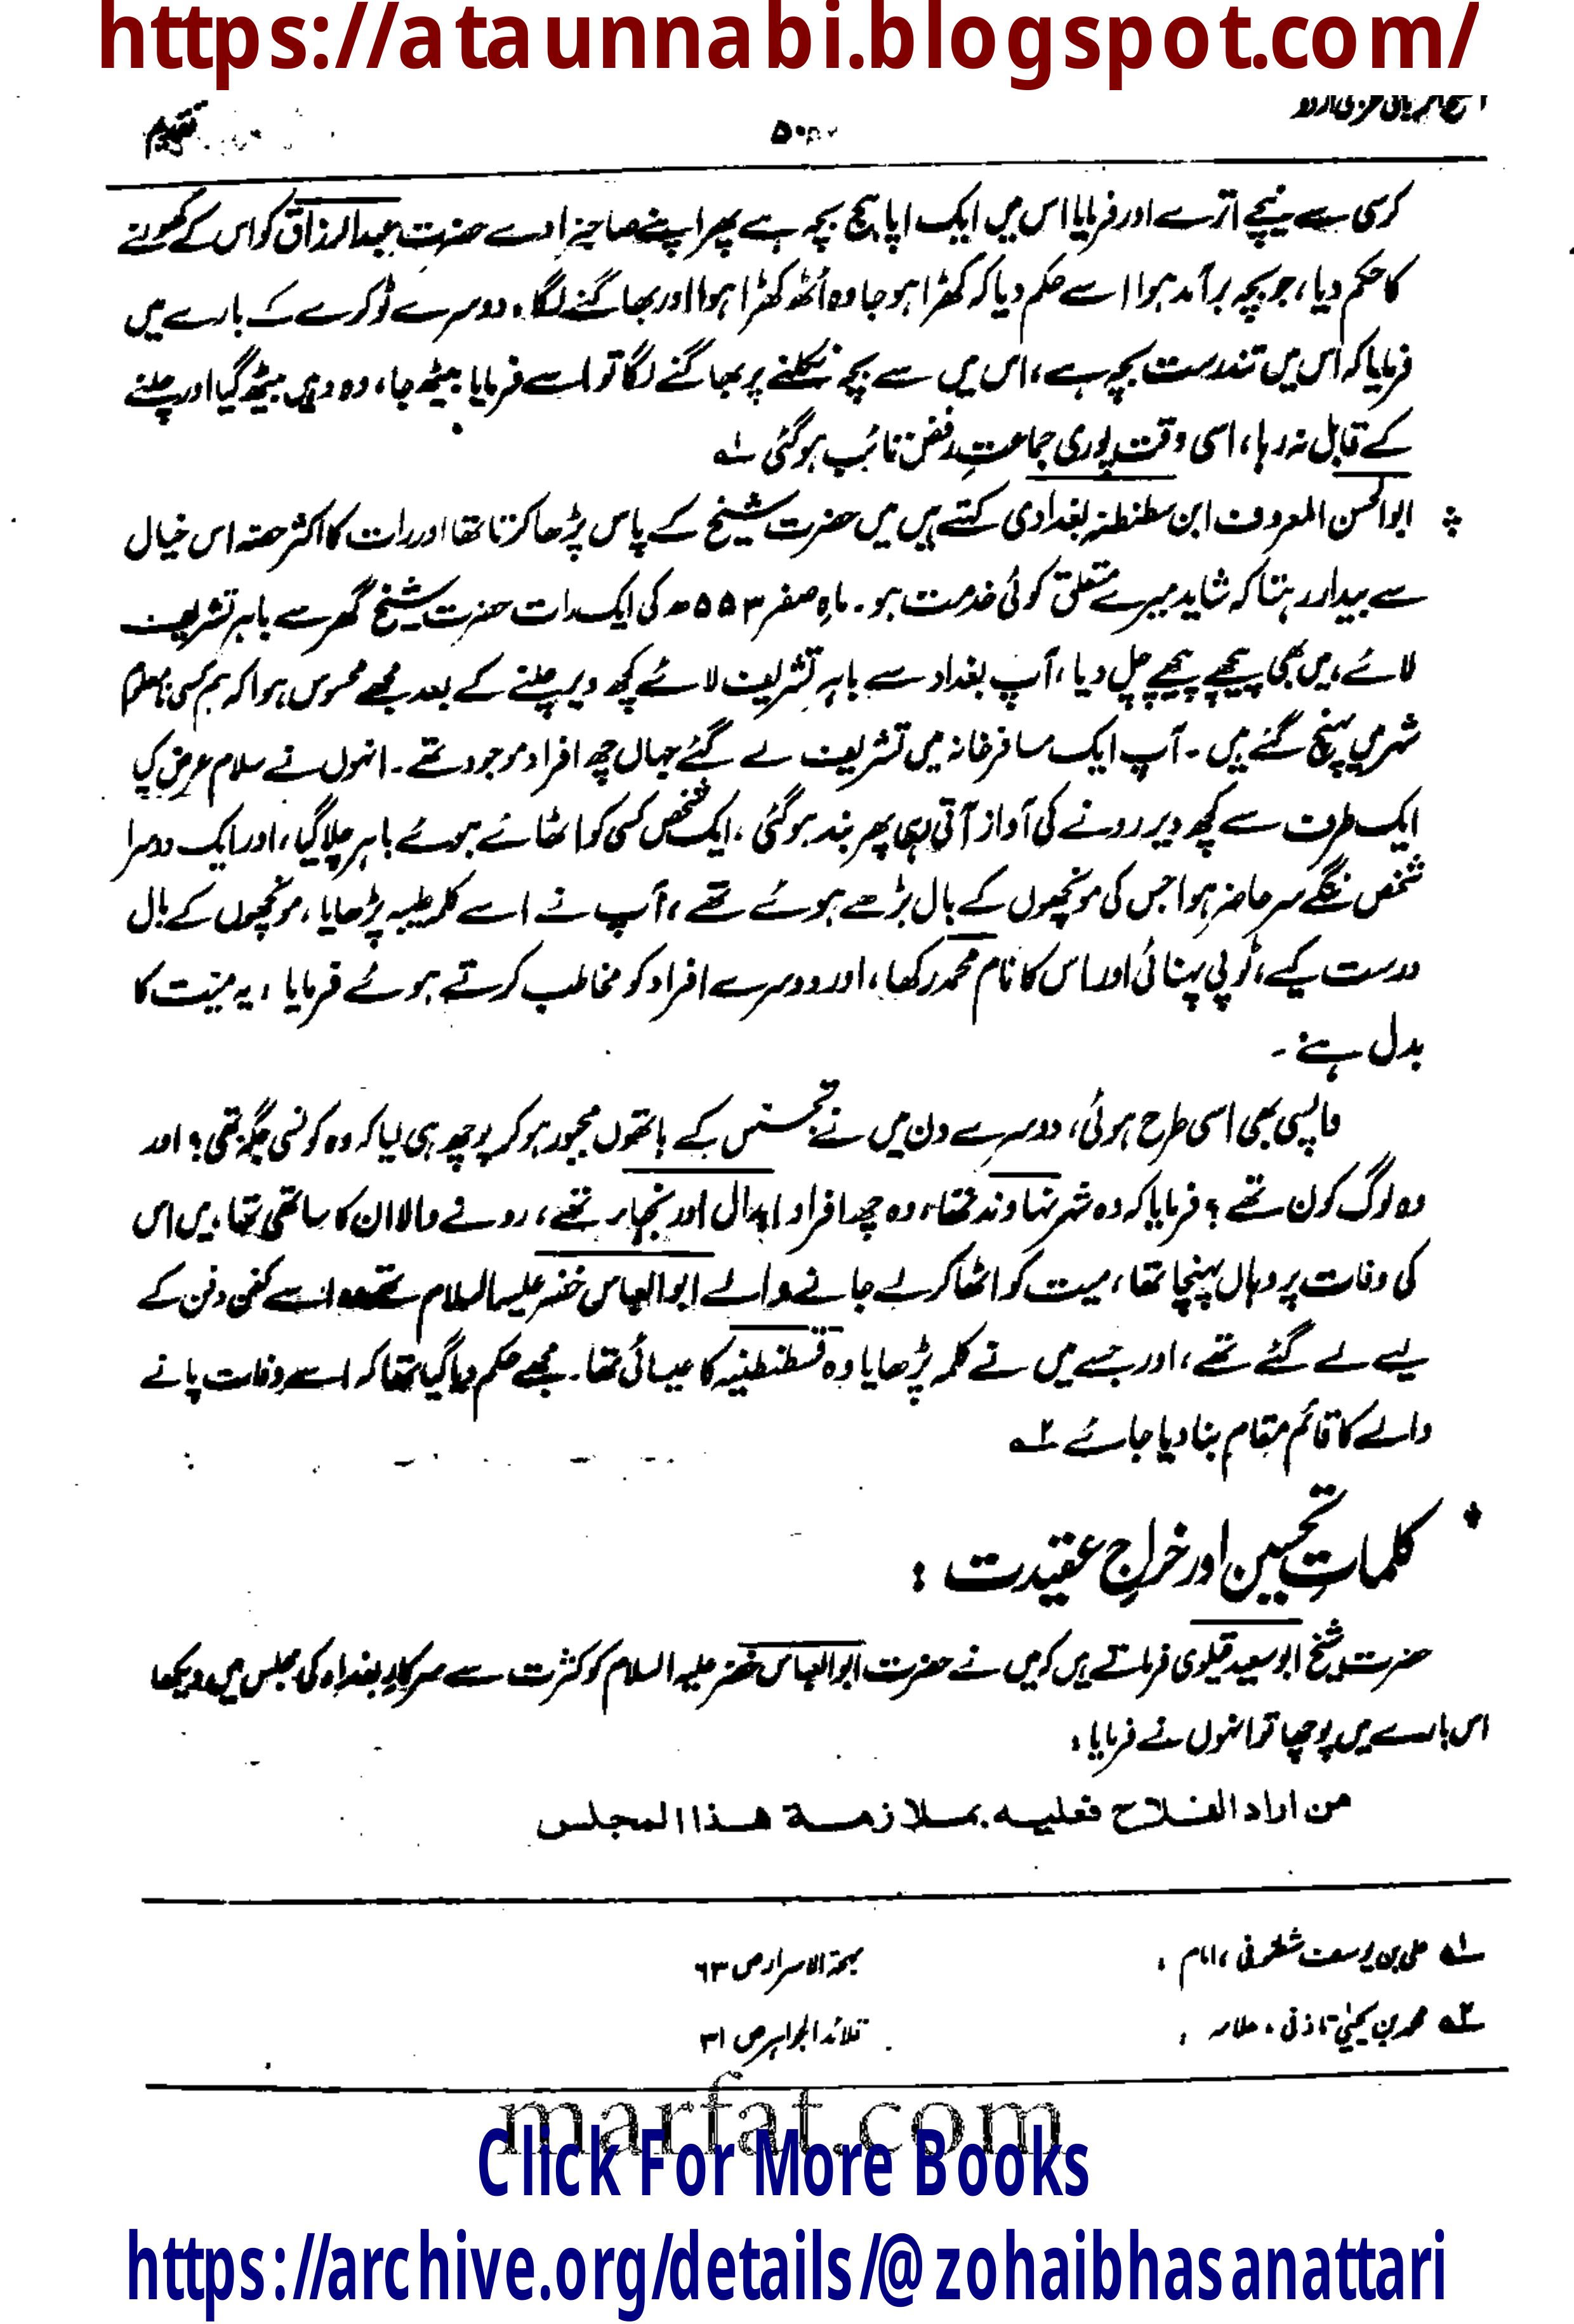 https://ataunnabi.blogspot.com/
تقدیم
کرسی سے نیچے اترے اور فرمایا اس میں ایک اپاہج بچہ ہے پھر اپنے صاحبزادے حضرت عبدالرزاق کو اس کے کھولنے
کا حکم دیا، جو بچہ برآمد ہوا اسے حکم دیا کہ کھڑا ہو جا وہ اُٹھ کھڑا ہوا اور بھاگنے لگا۔ دوسرے ٹوکرے کے بارے میں
فرمایا کہ اس میں تندرست بچہ ہے، اس میں سے بچہ نکلنے پر بھاگنے لگا تو اسے فرمایا بیٹھ جا، وہ وہیں بیٹھ گیا اور چلنے
کے قابل نہ رہا، اسی وقت پوری جماعتِ رفض تائب ہوگئی ؎۱
ابوالحسن المعروف ابن سطنطنہ بغدادی کہتے ہیں میں حضرت شیخ کے پاس پڑھا کرتا تھا اور رات کا اکثر حصہ اس خیال
سے بیدار رہتا کہ شاید میرے متعلق کوئی خدمت ہو۔ ماہِ صفر ۵۵۳ھ کی ایک رات حضرت شیخ گھر سے باہر تشریف
لائے، میں بھی پیچھے پیچھے چل دیا، آپ بغداد سے باہر تشریف لائے کچھ دیر چلنے کے بعد مجھے محسوس ہوا کہ ہم کسی نامعلوم
شہر میں پہنچ گئے ہیں۔ آپ ایک مسافرخانہ میں تشریف لے گئے جہاں چھ افراد موجود تھے۔ انہوں نے سلام عرض کیا
ایک طرف سے کچھ دیر رونے کی آواز آتی رہی پھر بند ہوگئی، ایک شخص کسی کو اٹھائے ہوئے باہر چلا گیا، اور ایک دوسرا
شخص ننگے سر حاضر ہوا جس کی مونچھوں کے بال بڑھے ہوئے تھے، آپ نے اسے کلمہ طیبہ پڑھایا، مونچھوں کے بال
درست کیے، ٹوپی پہنائی اور اس کا نام محمد رکھا، اور دوسرے افراد کو مخاطب کرتے ہوئے فرمایا، یہ میّت کا
بدل ہے۔
واپسی بھی اسی طرح ہوئی، دوسرے دن میں نے تجسس کے ہاتھوں مجبور ہو کر پوچھ ہی لیا کہ وہ کونسی جگہ تھی؟ اور
وہ لوگ کون تھے؟ فرمایا کہ وہ شہر نہاوند تھا، وہ چھ افراد ابدال اور نجباء تھے، رونے والا ان کا ساتھی تھا، میں اس
کی وفات پر وہاں پہنچا تھا، میت کو اٹھا کر لے جانے والے ابوالعباس خضر علیہ السلام تھے وہ اسے کفن دفن کے
لیے لے گئے تھے، اور جسے میں نے کلمہ پڑھایا وہ قسطنطنیہ کا عیسائی تھا۔ مجھے حکم دیا گیا تھا کہ اسے وفات پانے
والے کا قائم مقام بنا دیا جائے ؎۲
کلماتِ تحسین اور خراجِ عقیدت :
حضرت شیخ ابوسعید قیلوی فرماتے ہیں کہ میں نے حضرت ابوالعباس خضر علیہ السلام کو کثرت سے سرکارِ بغداد کی مجلس میں دیکھا
اس بارے میں پوچھا تو انہوں نے فرمایا:
من اراد الفلاح فعلیہ بملازمة هذا المجلس
؎۱ علی بن یوسف شطنوفی، امام : بہجۃ الاسرار ص ۶۳
؎۲ محمد بن یحییٰ تاذفی، علامہ : قلائد الجواہر ص ۳۱
marfat.com
Click For More Books
https://archive.org/details/@zohaibhasanattari